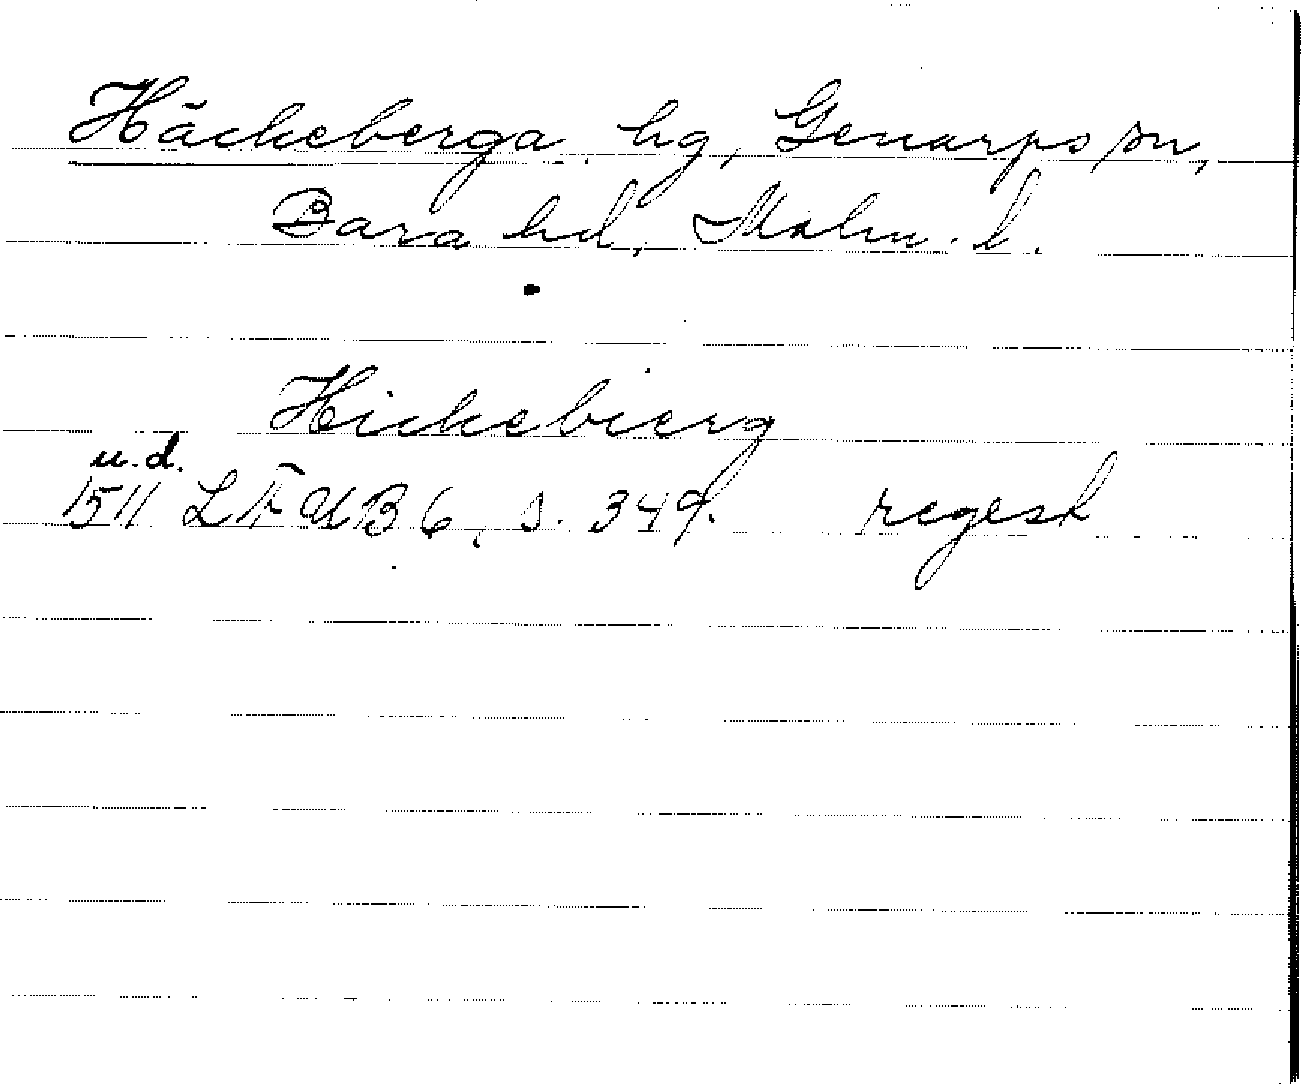 Häckeberga hg, Genarps sn,
Bara hd, Malm. l.
Hickebierg
u.d.
1511 LÄUB 6, s. 349. regest